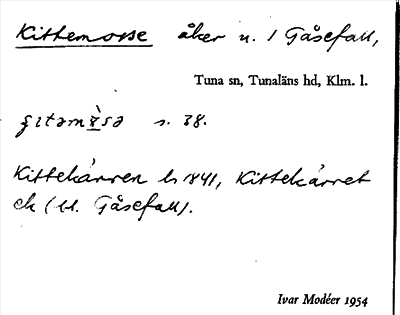 Kittemosse åker n. 1 Gåsefall,
Tuna sn, Tunaläns hd, Klm. l.
s. 38.
Kittekärren ls 1841, Kittekärret
ek (U. Gåsefall).
Ivar Modéer 1954